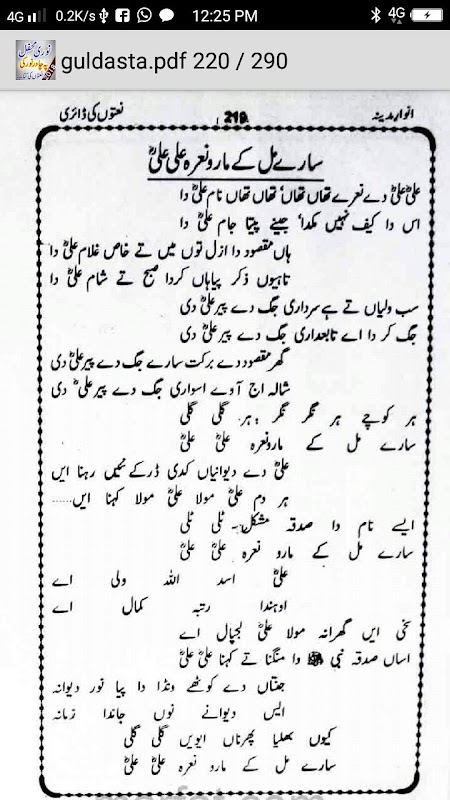 4G 0.2K/s 12:25 PM 4G
guldasta.pdf 220 / 290
انوار مدینہ 219 نعتوں کی ڈائری
سارے مل کے مارو نعرہ علی علیؓ
علیؓ علیؓ دے نعرے تھاں تھاں' تھاں تھاں نام علیؓ دا
اس دا کیف نہیں مکدا' جہنے پیتا جام علیؓ دا
ہاں مقصود دا ازل توں میں تے خاص غلام علیؓ دا
تاہیوں ذکر پیاہاں کردا صبح تے شام علیؓ دا
سب ولیاں تے ہے سرداری جگ دے پیر علیؓ دی
جگ کردا اے تابعداری جگ دے پیر علیؓ دی
گھر مقصود دے برکت سارے جگ دے پیر علیؓ دی
شالہ اج آوے اسواری جگ دے پیر علیؓ دی
ہر کوچے ہر نگر نگر' ہر گلی گلی
سارے مل کے مارو نعرہ علیؓ علیؓ
علیؓ دے دیوانیاں کدی ڈر کے نئیں رہنا ایں
ہر دم علیؓ مولا علیؓ مولا کہنا ایں......
ایسے نام دا صدقہ مشکل ٹلی ٹلی
سارے مل کے مارو نعرہ علیؓ علیؓ
علیؓ اسد اللہ ولی اے
اوہندا رتبہ کمال اے
سخی ایں گھرانہ مولا علیؓ لجپال اے
اساں صدقہ نبی ﷺ دا منگنا تے کہنا علیؓ علیؓ
جہتاں دے کوٹھے ونڈا دا پیا نور دیوانہ
ایس دیوانے نوں جاندا زمانہ
کیوں بھلیا پھرناں ایویں گلی گلی
سارے مل کے مارو نعرہ علیؓ علیؓ